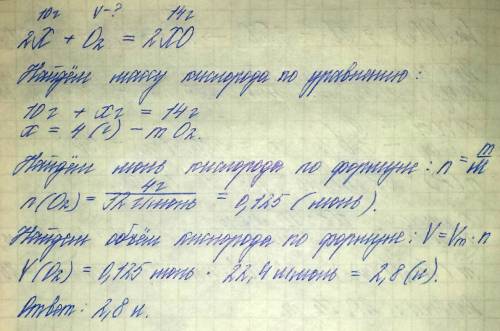 10г V-? 14г
2X + O₂ = 2XO
Найдём массу кислорода по уравнению:
10г + xг = 14г
x = 4(г) - m O₂.
Найдём моль кислорода по формуле: n = m/M
n(O₂) = 4г/32г/моль = 0,125 (моль).
Найдем объём кислорода по формуле: V=Vm·n
V(O₂) = 0,125 моль · 22,4 л/моль = 2,8 (л).
Ответ: 2,8 л.